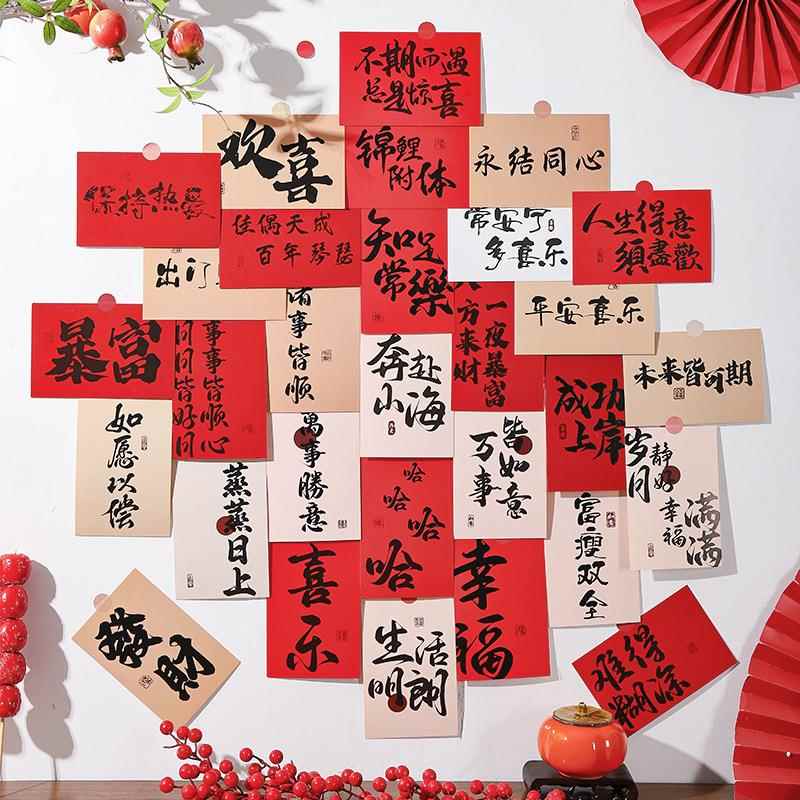 不期而遇
总是惊喜
欢喜
锦鲤
附体
永结同心
保持热爱
佳偶天成
百年琴瑟
知足
常樂
常安宁
多喜乐
人生得意
須盡歡
出门
平安喜乐
暴富
事事皆顺心
日日皆好日
诸事皆顺
奔赴
山海
一夜暴富
方来财
成功
上岸
未来皆可期
如愿以偿
蒸蒸日上
萬事勝意
哈哈哈哈
万事
皆如意
岁月
静好
幸福
满满
富瘦双全
喜乐
幸福
生活
明朗
發財
难得
糊涂